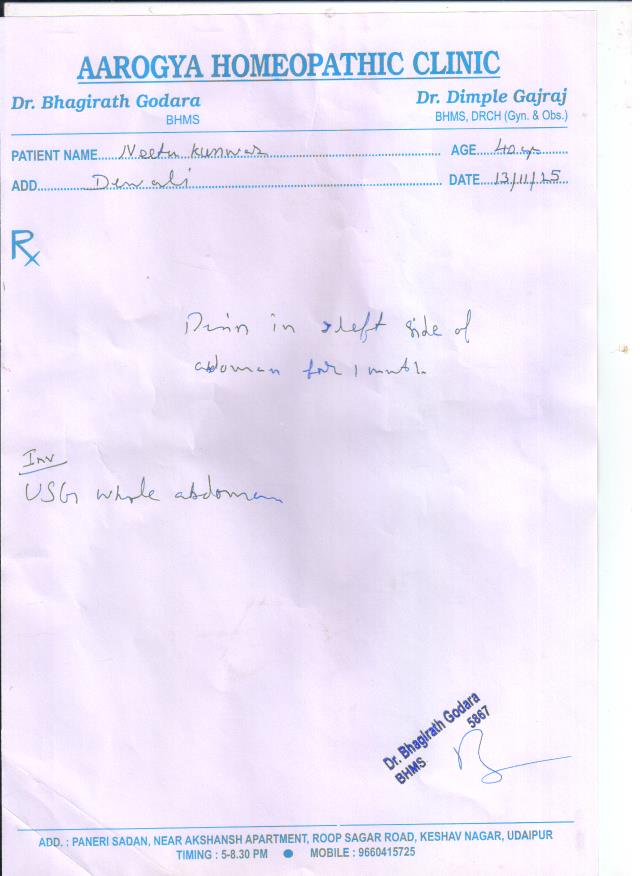 AAROGYA HOMEOPATHIC CLINIC
Dr. Bhagirath Godara
BHMS
Dr. Dimple Gajraj
BHMS, DRCH (Gyn. & Obs.)
PATIENT NAME Neetu Kunwar AGE 40 yr
ADD Dewali DATE 13/11/25
Rx
Pain in left side of
abdoman for 1 month
Inv
USG whole abdoman
Dr. Bhagirath Godara
BHMS 5867
ADD. : PANERI SADAN, NEAR AKSHANSH APARTMENT, ROOP SAGAR ROAD, KESHAV NAGAR, UDAIPUR
TIMING : 5-8.30 PM ● MOBILE : 9660415725